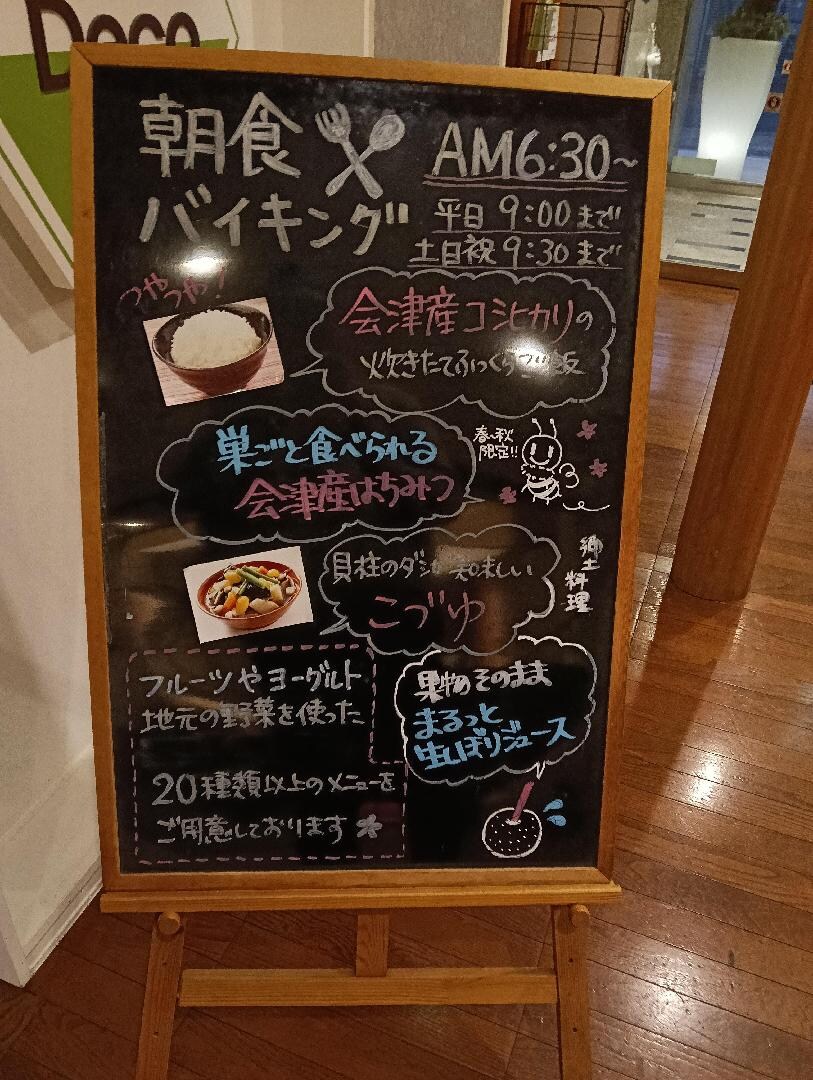 Doco
朝食
バイキング
AM6:30~
平日 9:00まで
土日祝 9:30まで
つやつや!
会津産コシヒカリの
炊きたてふっくらご飯
巣ごと食べられる
会津産はちみつ
春・秋
限定!!
貝柱のダシが美味しい
こづゆ
郷土料理
フルーツやヨーグルト
地元の野菜を使った
20種類以上のメニューを
ご用意しております
果物そのまま
まるっと
生しぼりジュース